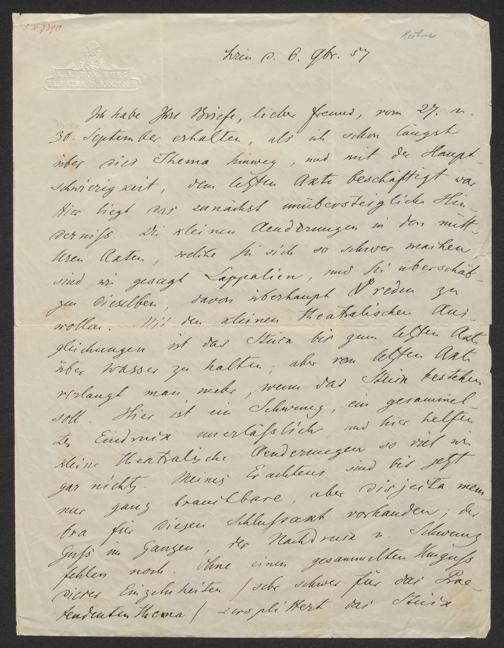 d. 6. 9br. 57
Ich habe Ihre Briefe, lieber Freund, vom 27. u.
30. September erhalten, als ich schon längst
über dies Thema hinweg, und mit der Haupt-
schwierigkeit, dem letzten Akte beschäftigt war.
Hier liegt das zunächst unübersteigliche Hin-
derniß. Die kleinen Aenderungen in den mitt-
leren Akten, welche Sie sich so schwer machen,
sind wie gesagt Lappalien, und Sie überschät-
zen dieselben davon überhaupt reden zu
wollen. Mit den kleinen theatralischen Aus-
gleichungen ist das Stück bis zum letzten Akt
über Wasser zu halten, aber vom letzten Akte
verlangt man mehr, wenn das Stück bestehen
soll. Hier ist ein Schwung, ein gesammel-
ter Eindruck unerläßlich und hier helfen
kleine theatralische Aenderungen so viel wie
gar nichts. Meines Erachtens sind bis jetzt
nur ganz brauchbare, aber disjecta mem
bra für diesen Schlußakt vorhanden; der
Guß im Ganzen, der Nachdruck u. Schwung
fehlen noch. Ohne einen gesammelten
dieses Einzelnheiten / sehr schwer für das Prae
tendententhema / zersplittert das Stück